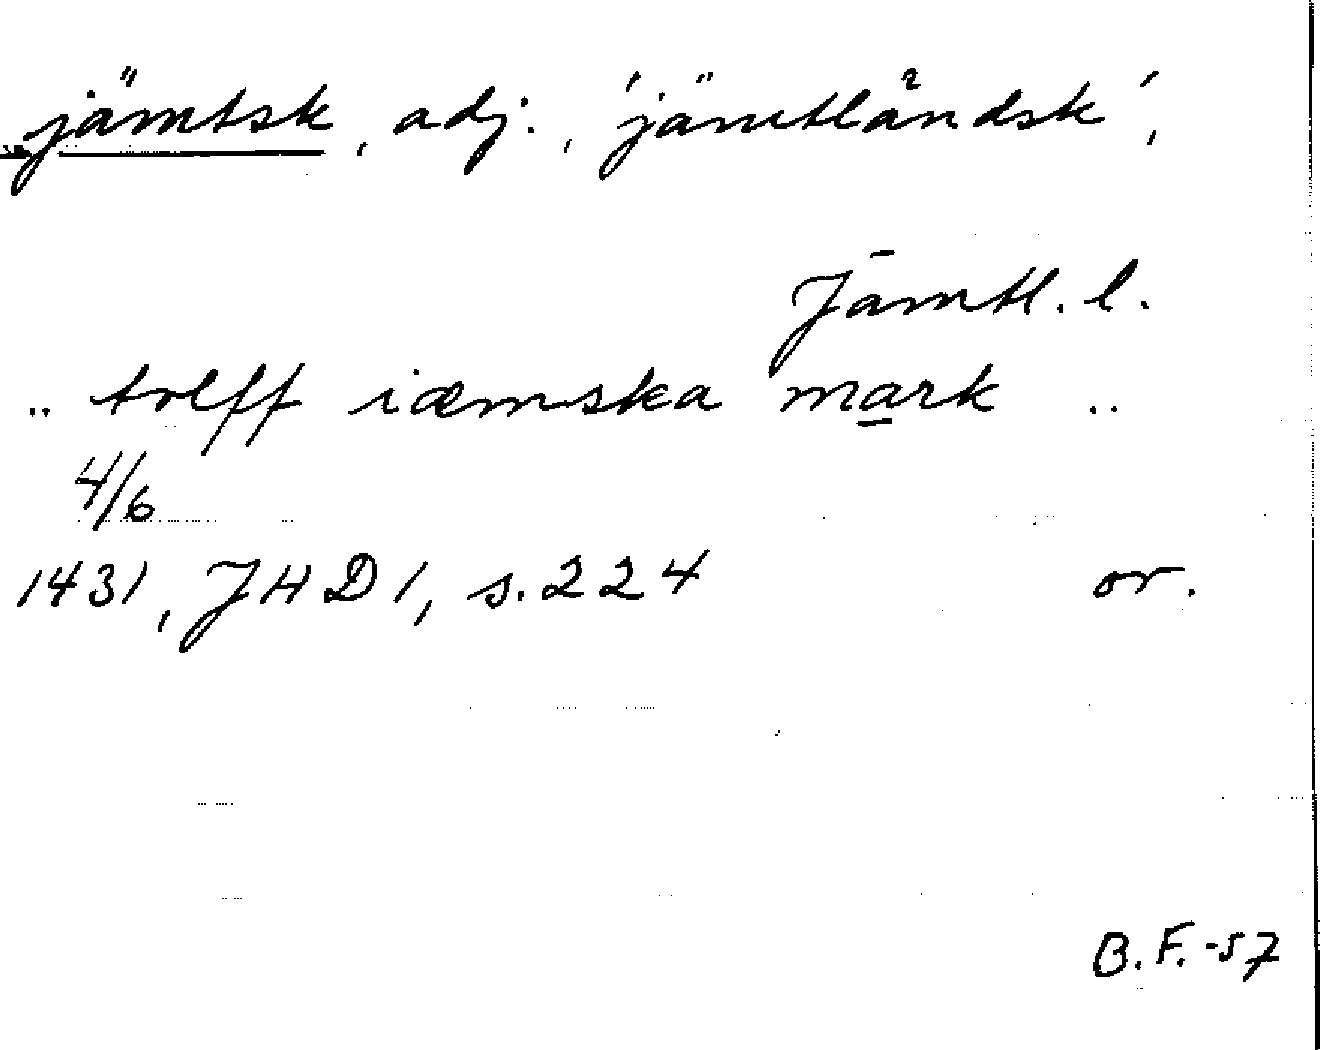 jämtsk, adj., 'jämtländsk',
Jämtl. l.
.. tolff iæmska mark ..
4/6
1431, JHD 1, s. 224 or.
B. F. -57